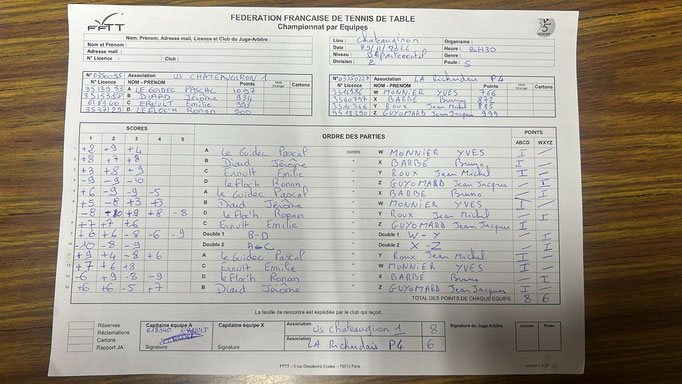 FEDERATION FRANCAISE DE TENNIS DE TABLE
Championnat par Equipes
FFTT
Nom, Prénom, Adresse mail, Licence et Club du Juge-Arbitre :
Nom et Prénom :
Adresse mail :
N° Licence : Club :
Lieu : Chateaugiron Organisme :
Date : Heure : 
Niveau : Départemental Genre :
Division : 2 Poule : 5
Association US CHATEAUGIRON 1
N° Licence NOM - PRENOM Points Cartons
A LE GUIDEC PASCAL
B DIARD Jérôme
C ERNULT Emilie
D LE FLOCH Ronan 900
Association LA Richardais P4
N° Licence NOM - PRENOM Points Cartons
W MONNIER YVES 766
X BARBE Bruno 872
Y ROUX Jean Michel
Z GUYOMARD Jean Jacques 999
SCORES ORDRE DES PARTIES POINTS
1 2 3 4 5 ABCD WXYZ
+2 +9 +4 A Le Guidec Pascal contre W MONNIER YVES I /
+8 +7 +8 B Diard Jérôme X BARBE Bruno I /
+3 +8 +9 C Ernult Emilie Y ROUX Jean Michel I /
-9 -9 -10 D Le Floch Ronan Z GUYOMARD Jean Jacques / I
+6 -9 -9 -5 A Le Guidec Pascal X BARBE Bruno / I
+5 -8 +3 +3 B Diard Jérôme W MONNIER YVES I /
-8 +10 +9 +8 -8 D Le Floch Ronan Y Roux Jean Michel / I
+7 +7 +6 C Ernult Emilie Z GUYOMARD Jean Jacques I /
+6 +6 -8 -6 -9 Double 1 B-D Double 1 W - Y / I
-10 -8 -9 Double 2 A-C Double 2 X - Z / I
+9 +4 -8 +6 A Le Guidec Pascal Y Roux Jean Michel I /
+7 +6 +8 C Ernult Emilie W MONNIER YVES I /
-6 +9 -8 -9 D Le Floch Ronan X BARBE Bruno / I
+6 +6 -5 +7 B Diard Jérôme Z GUYOMARD Jean Jacques I /
TOTAL DES POINTS DE CHAQUE EQUIPE 8 6
La feuille de rencontre est expédiée par le club qui reçoit.
Réserves
Réclamations
Cartons
Rapport JA
Capitaine équipe A Capitaine équipe X
ERNULT
Signature Signature
Association US Chateaugiron 1 8
Association LA Richardais P4 6
Signature du Juge-Arbitre
FFTT – 3 rue Dieudonné Costes – 75013 Paris